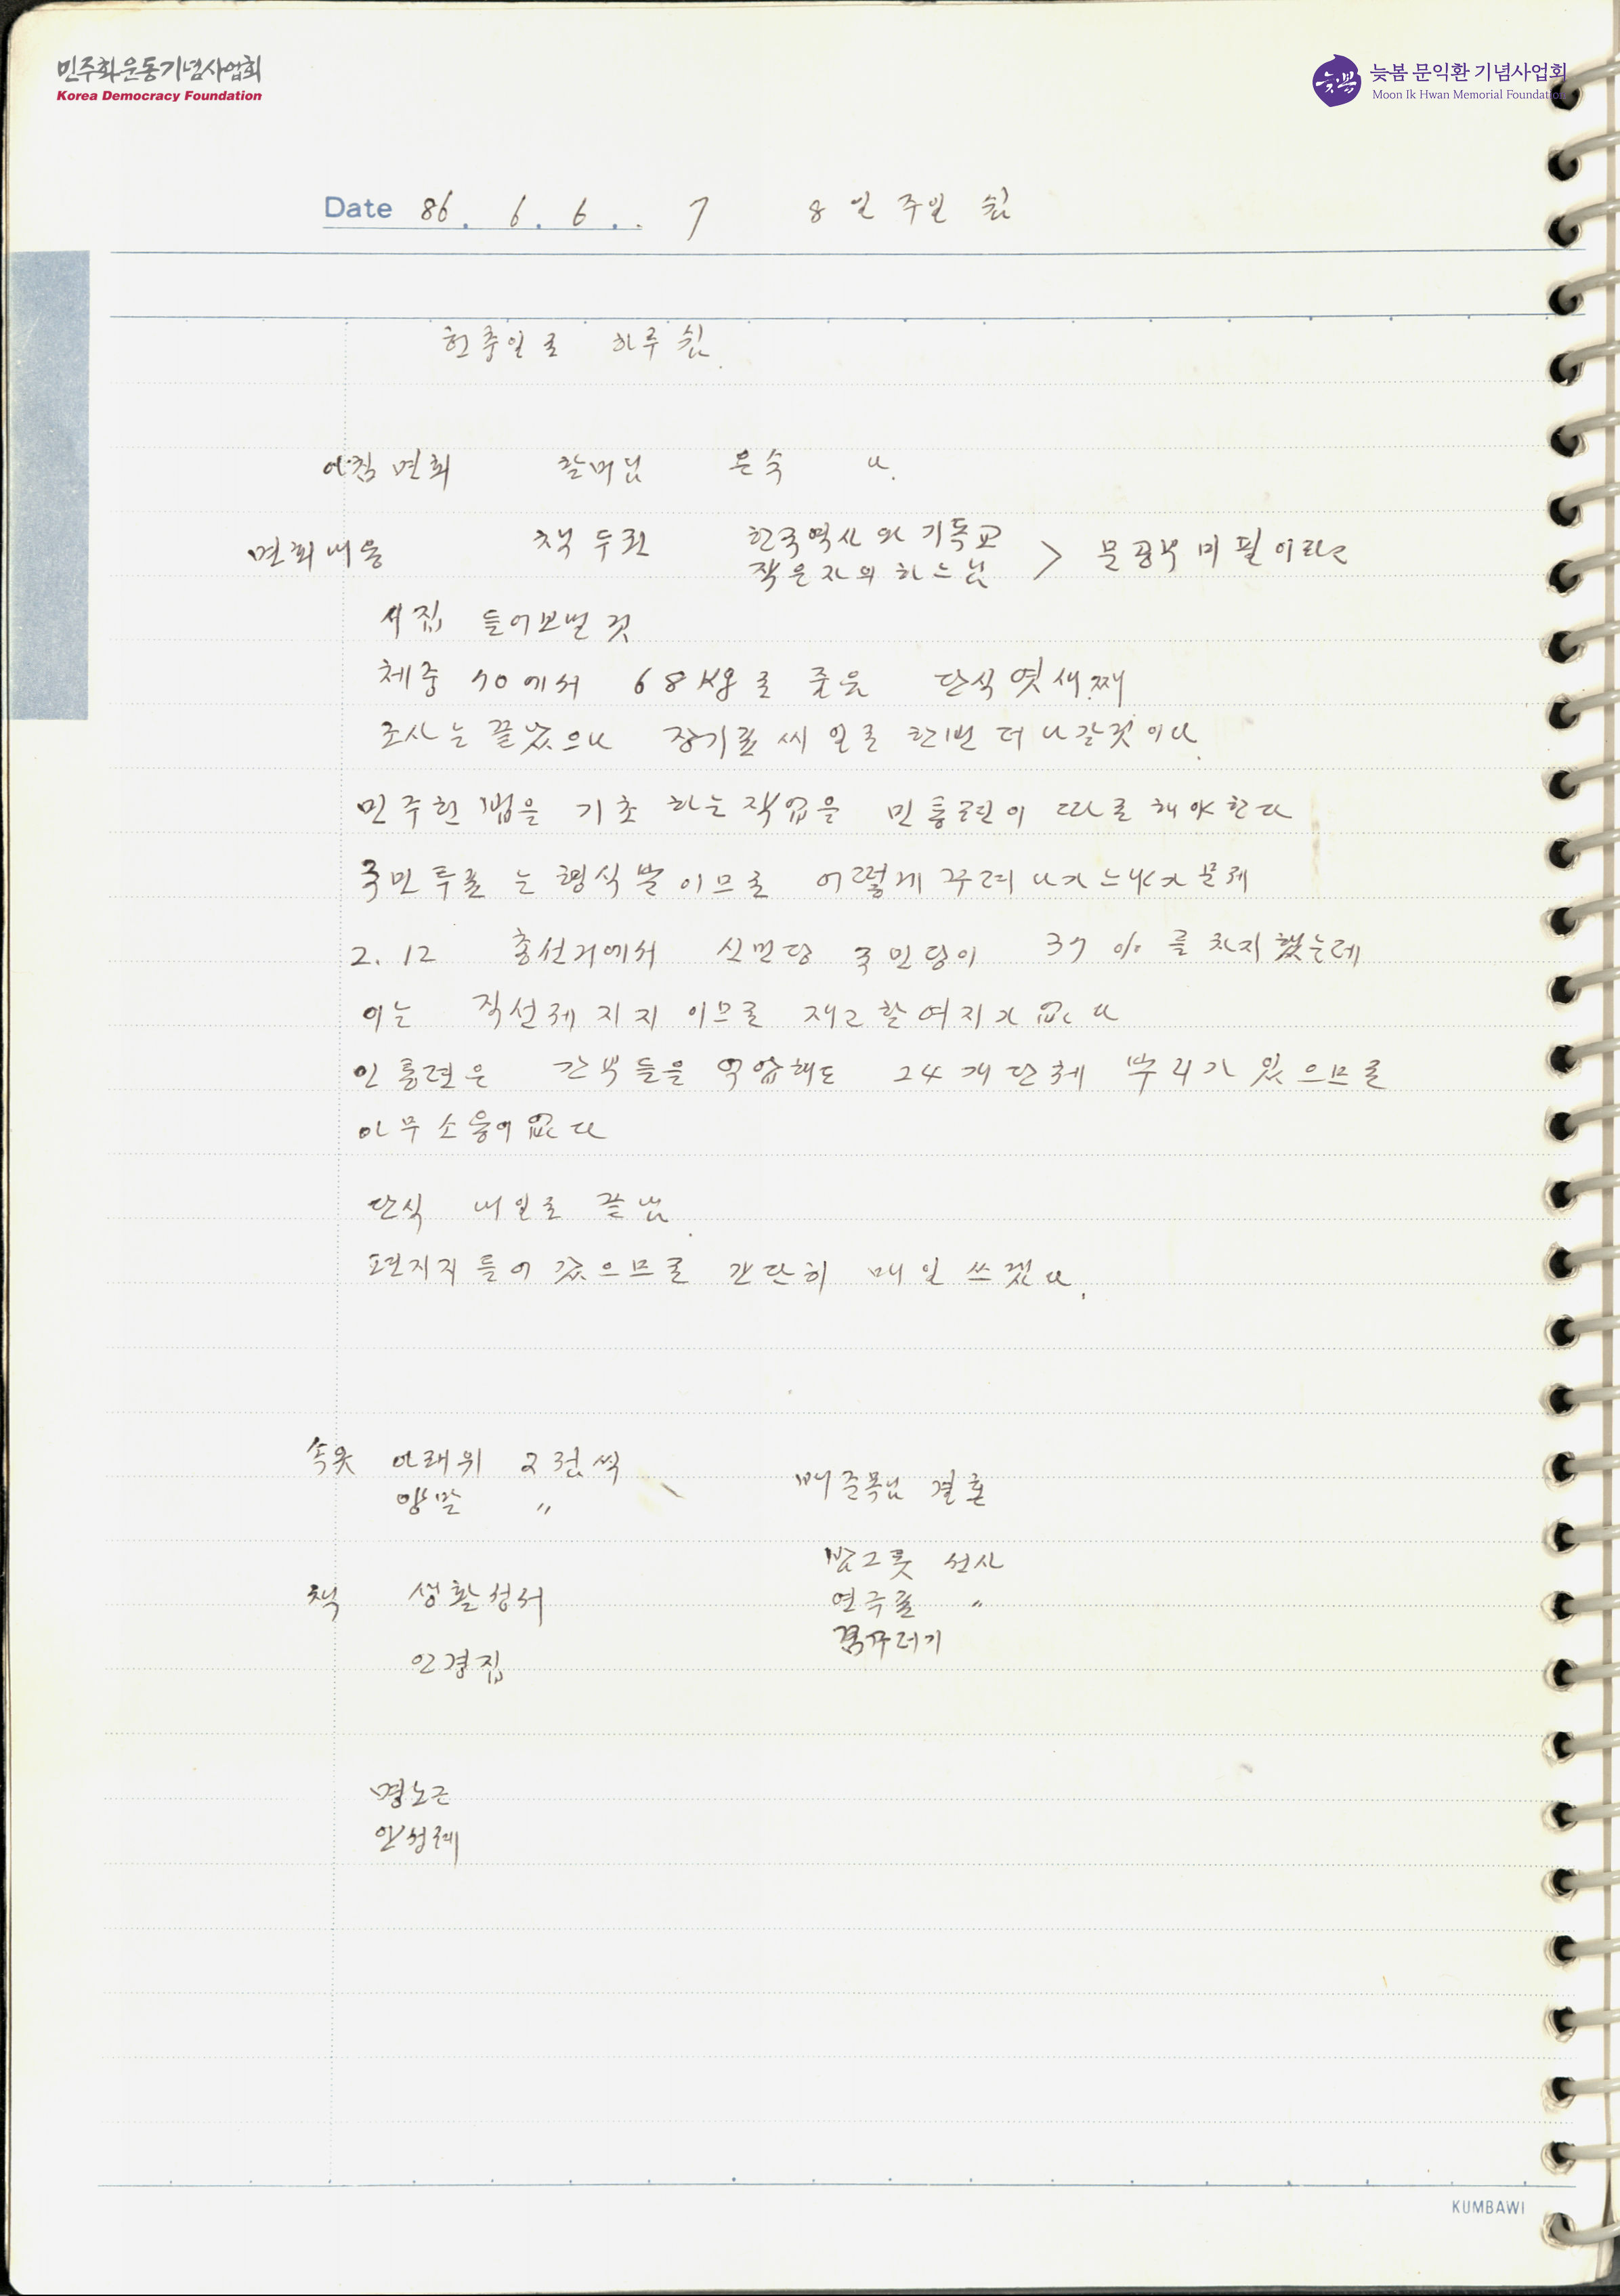 민주화운동기념사업회
Korea Democracy Foundation
늦봄 문익환 기념사업회
Moon Ik Hwan Memorial Foundation
Date 86. 6. 6.. 7 8일 주일 쉼
현충일로 하루 쉼.
아침 면회 할머님 은숙 나.
면회내용 책 두권 한국역사와 기독교 > 문공부 미필이라고
작은자의 하느님
시집 들여보낼 것
체중 70에서 68Kg로 줄음 단식 엿새째
조사는 끝났으나 장기표씨 일로 한번 더 나갈것이다.
민주헌법을 기초하는 작업을 민통련이 따로 해야한다
국민투표는 형식뿐이므로 어떻게 꾸려나가느냐가 문제
2. 12 총선거에서 신민당 국민당이 37%를 차지했는데
이는 직선제 지지이므로 재고할여지가 없다
민통련은 간부들을 억압해도 24개단체 뿌리가 있으므로
아무소용이 없다
단식 내일로 끝냄.
편지지 들어갔으므로 간단히 매일 쓰겠다.
속옷 아래위 2점씩
양말 〃
책 생활성서
안경집
결혼
밥그릇 선사
연극표 〃
명노근
안성례
KUMBAWI